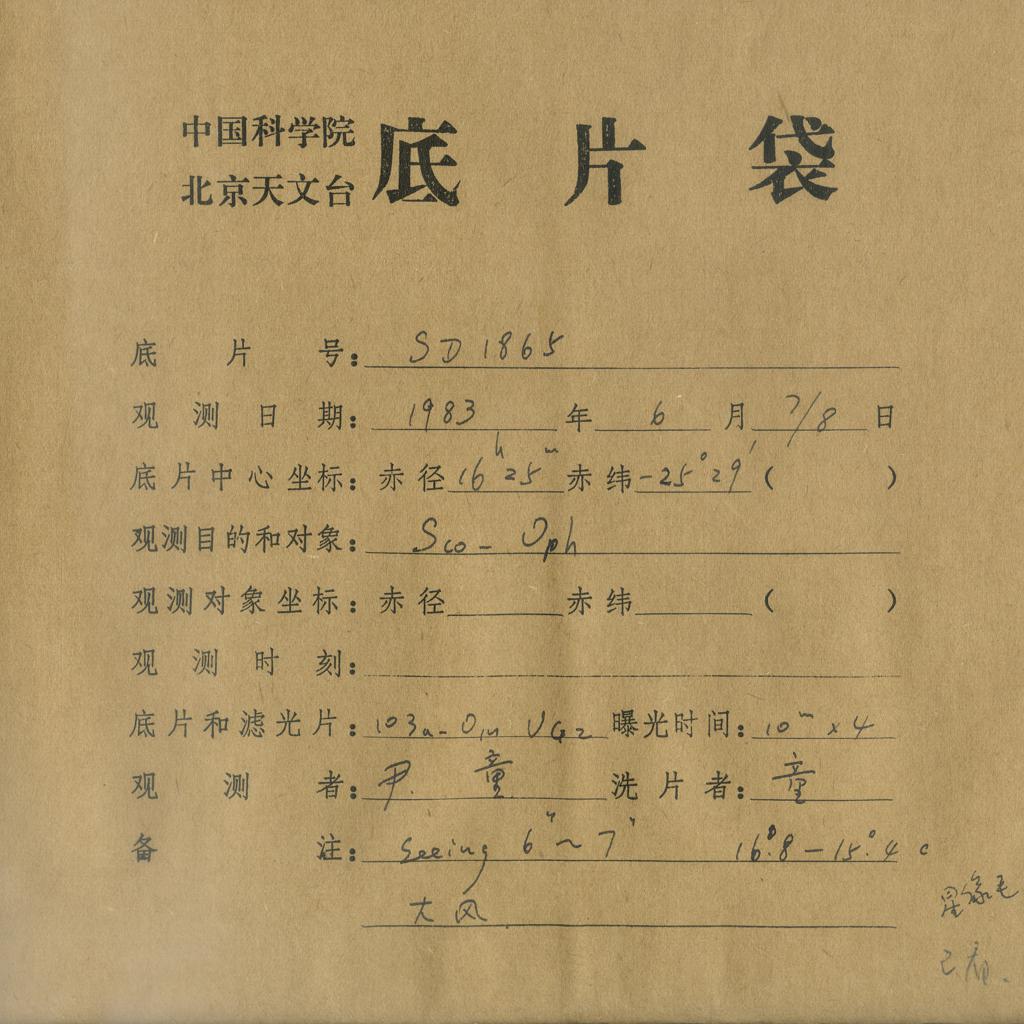 中国科学院
北京天文台
底片袋
底片号：SD 1865
观测日期：1983年6月7/8日
底片中心坐标：赤径16ʰ25ᵐ赤纬-25°29′（ ）
观测目的和对象：Sco - Oph
观测对象坐标：赤径 赤纬 （ ）
观测时刻：
底片和滤光片：103a-O UG2 曝光时间：10ᵐ×4
观测者：尹. 童 洗片者：童
备注：seeing 6″~7″ 16°.8-15°.4 c
大风
星像毛
已看.